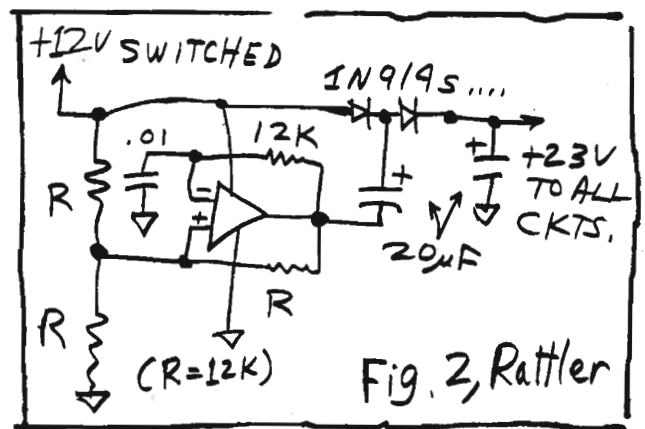 +12V SWITCHED
1N914s....
.01
12K
+
R
-
+
+
+23V
TO ALL
CKTS.
20µF
R
R
(R=12K)
Fig. 2, Rattler